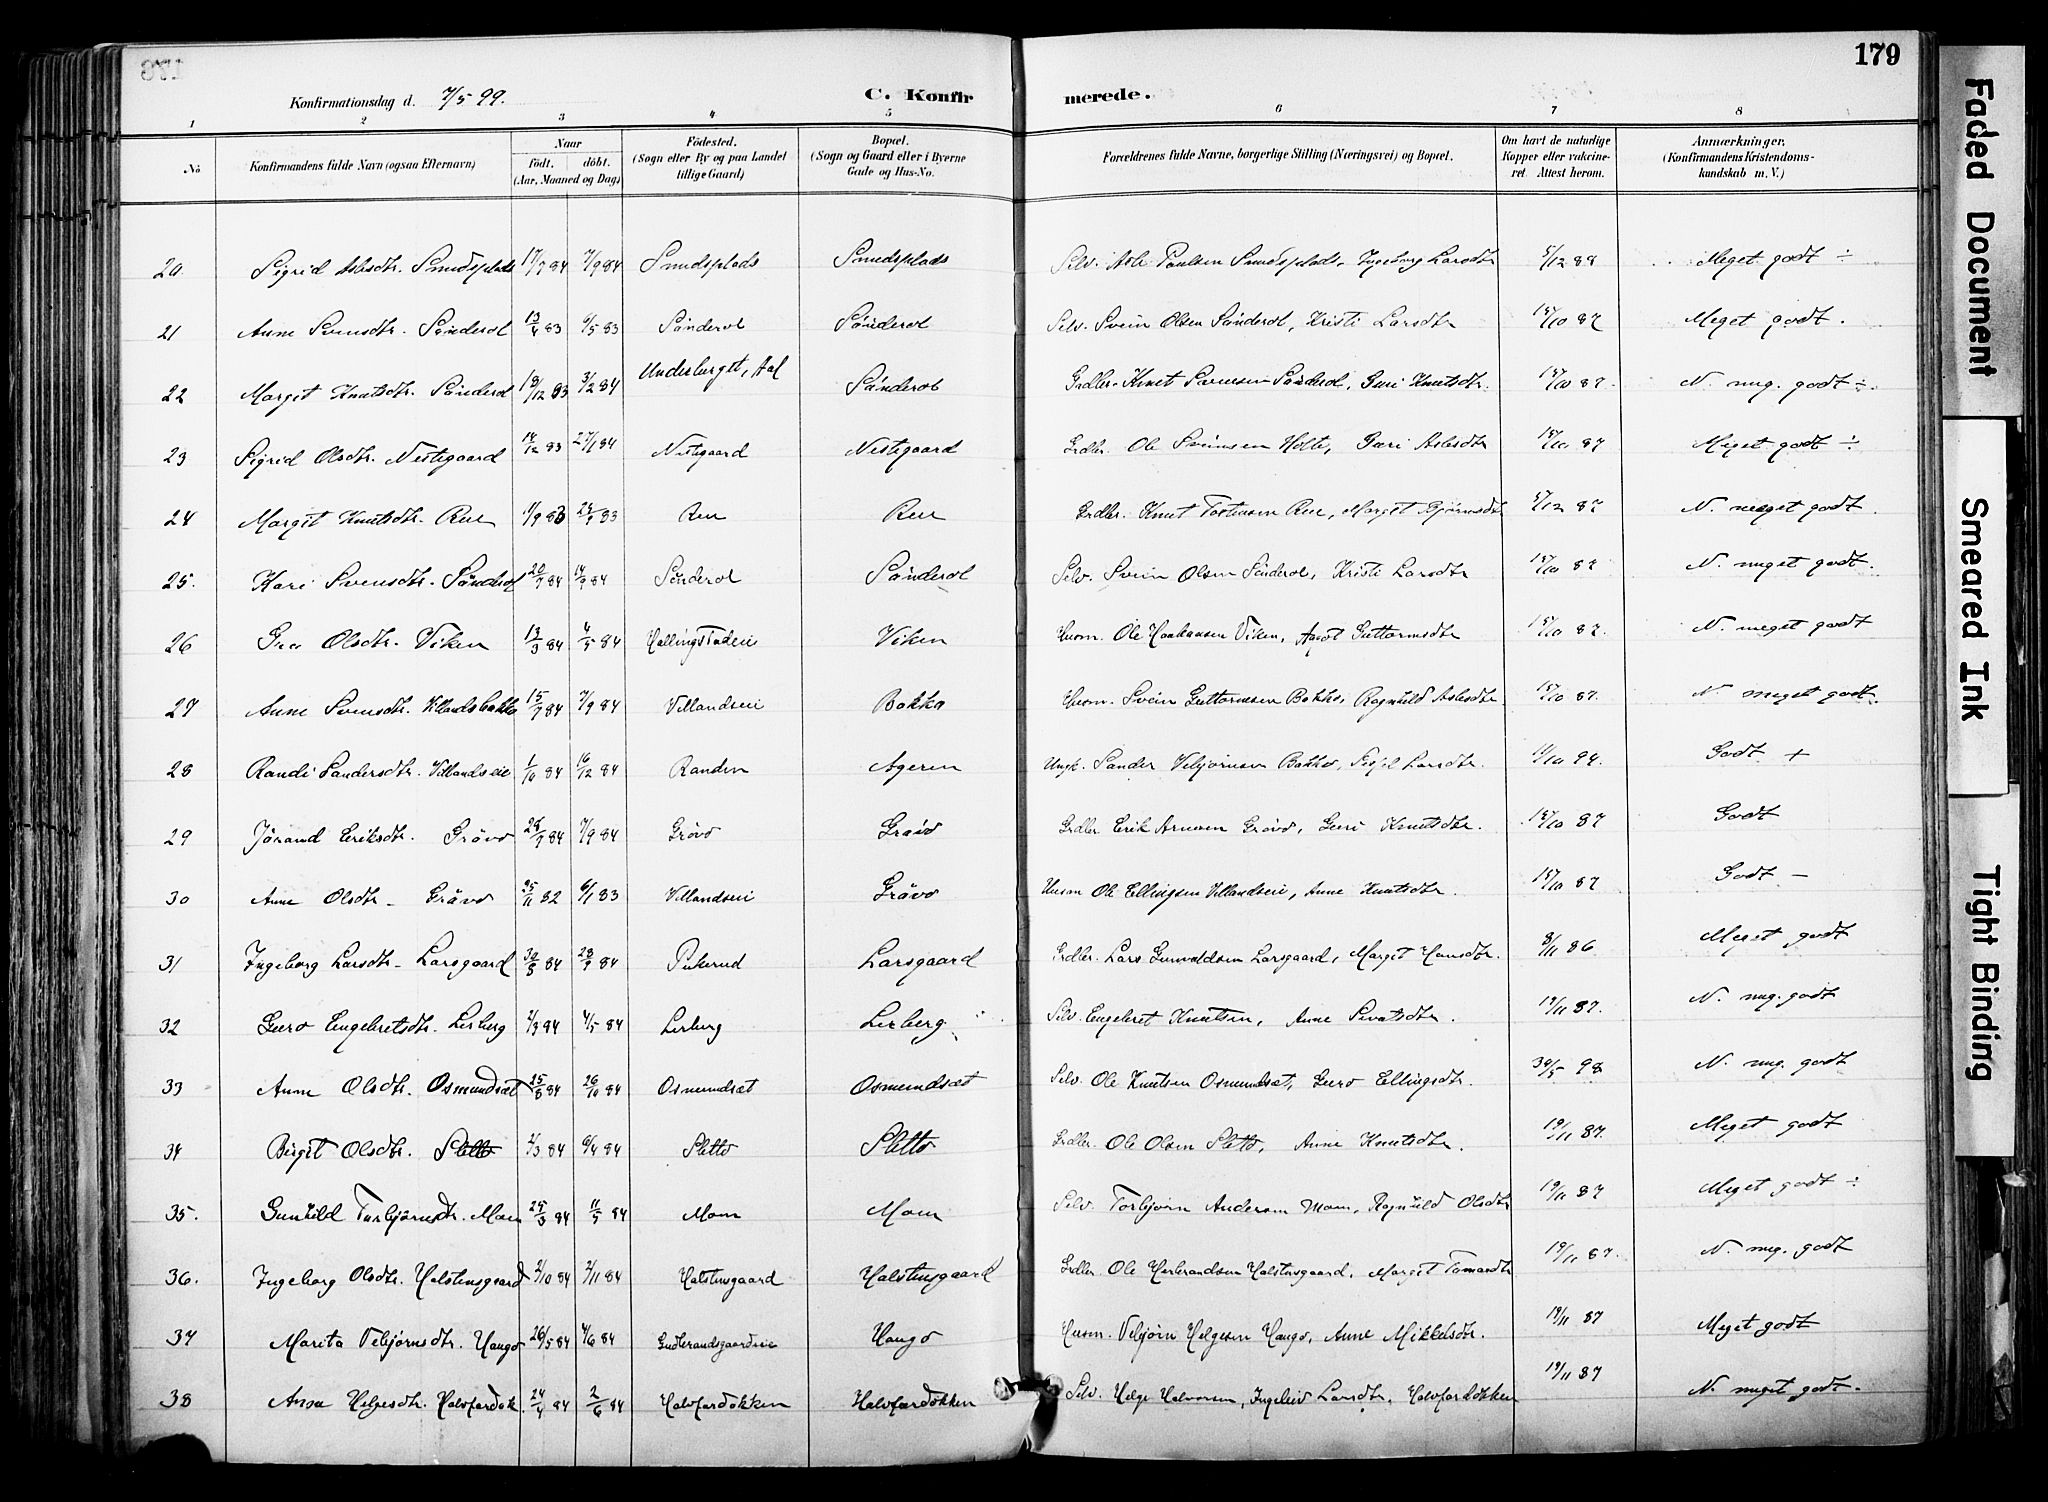 179
Konfirmationsdag d. 7/5 99.
C. Konfirmerede.
1 2 3 4 5 6 7 8
No
Konfirmandens fulde Navn (ogsaa Efternavn)
Naar
födt. döbt.
(Aar, Maaned og Dag)
Födested.
(Sogn eller By og paa Landet
tillige Gaard)
Bopæl.
(Sogn og Gaard eller i Byerne
Gade og Hus-No.
Forældrenes fulde Navne, borgerlige Stilling (Næringsvei) og Bopæl.
Om havt de naturlige
Kopper eller vakcine-
ret. Attest herom.
Anmærkninger.
(Konfirmandens Kristendoms-
kundskab m. V.)
20 Sigrid Aslesdtr. Smedsplads 17/7 84 7/9 84 Smedsplads Smedsplads Selv. Asle Paulsen Smedsplads, Ingeborg Larsdtr 5/12 88 Meget godt ÷
21 Anne Svensdtr. Sönderol 13/4 83 6/5 83 Sönderol Sönderol Selv. Svein Olsen Sönderol, Kristi Larsdtr 15/10 87 Meget godt.
22 Margit Knutsdtr. Sönderol 18/12 83 3/2 84 Underberget, Aal Sönderol Grdlr. Knut Svensen Sönderol, Guri Knutsdtr. 15/10 87. N. meg. godt ÷.
23 Sigrid Olsdtr. Nestegaard 14/12 83 27/1 84 Nestegaard Nestegaard Grdlr. Ole Svensen Holto, Guri Aslesdtr 15/10 87 Meget godt ÷
24 Margit Knutsdtr. Rue 1/9 83 23/9 83 Rue Rue Grdlr. Knut Tostensen Rue, Margit Bjørnsdtr 5/12 87 N. meget godt.
25. Kari Svensdtr. Sönderol 20/7 84 14/9 84 Sönderol Sönderol Selv. Svein Olsen Sönderol, Kristi Larsdtr 15/10 87 N. meget godt.
26 Gro Olsdtr. Viken 13/3 84 4/5 84 Viken Husm. Ole Haakansen Viken, Guttormsdtr 15/10 87. N. meget godt
27 Anne Svensdtr. Villandsbakko 15/7 84 7/9 84 Villandseie Bakko Husm. Svein Guttormsen Bakko, Ragnhild Aslesdtr 15/10 87. N. meget godt.
28 Randi Sandersdtr. Villandseie 1/10 84 16/12 84 Randen Ageren Ungk. Sander Vebjörnsen Bakko, Larsdtr. 94. Godt +
29 Jörand Eriksdtr. Grövo 28/7 84 7/9 84 Grövo Grövo Grdlr. Erik Arnesen Grövo, Guri Knutsdtr. 15/10 87 Godt
30 Anne Olsdtr. Grövo 25/11 82 6/1 83 Villandseie Grövo Husm Ole Ellingsen Villandseie, Anne Knutsdtr. 15/10 87 Godt –
31 Ingeborg Larsdtr. Larsgaard 30/8 84 28/9 84 Pukerud Larsgaard Grdlr. Lars Gunvaldsen Larsgaard, Margit Hansdtr. 8/11 86 Meget godt
32 Guro Engebretsdtr. Lerberg 2/3 84 4/5 84 Lerberg Lerberg Selv. Engebret Knutsen, Anne Sevatsdtr. 19/11 87. N. meg. godt
33 Anne Olsdtr. Osmundsæt 25/8 84 26/10 84 Osmundsæt Osmundsæt Selv. Ole Knutsen Osmundsæt, Guro Ellingsdtr. 30/5 98 N. meg. godt
34 Birgit Olsdtr. Sletto 2/3 84 6/4 84 Sletto Sletto Grdlr. Ole Olsen Sletto, Anne Knutsdtr. 19/11 87. Meget godt
35. Gunhild Torbjörnsdtr. Moen 29/3 84 11/5 84 Moen Moen Selv. Torbjörn Andersen Moen, Ragnhild Olsdtr 19/11 87 Meget godt ÷
36. Ingeborg Olsdtr. Halstensgaard 2/10 84 2/11 84 Halstensgaard Halstensgaard Grdlr. Ole Herbrandsen Halstensgaard, Margit Tomasdtr 19/11 87. N. meg. godt
37 Marita Vebjörnsdtr. Haugo 26/5 84 4/6 84 Gudbrandsgaardeie Haugo Husm. Vebjörn Helgesen Haugo, Anne Mikkelsdtr. 19/11 87 Meget godt
38 Helgesdtr. Halvfardok. 24/4 84 2/6 84 Halvfardokken Halvfardokken Selv. Helge Halvorsen, Ingeleiv Larsdtr. Halvfardokken 19/11 87 N. meget godt.
Faded Document
Smeared Ink
Tight Binding